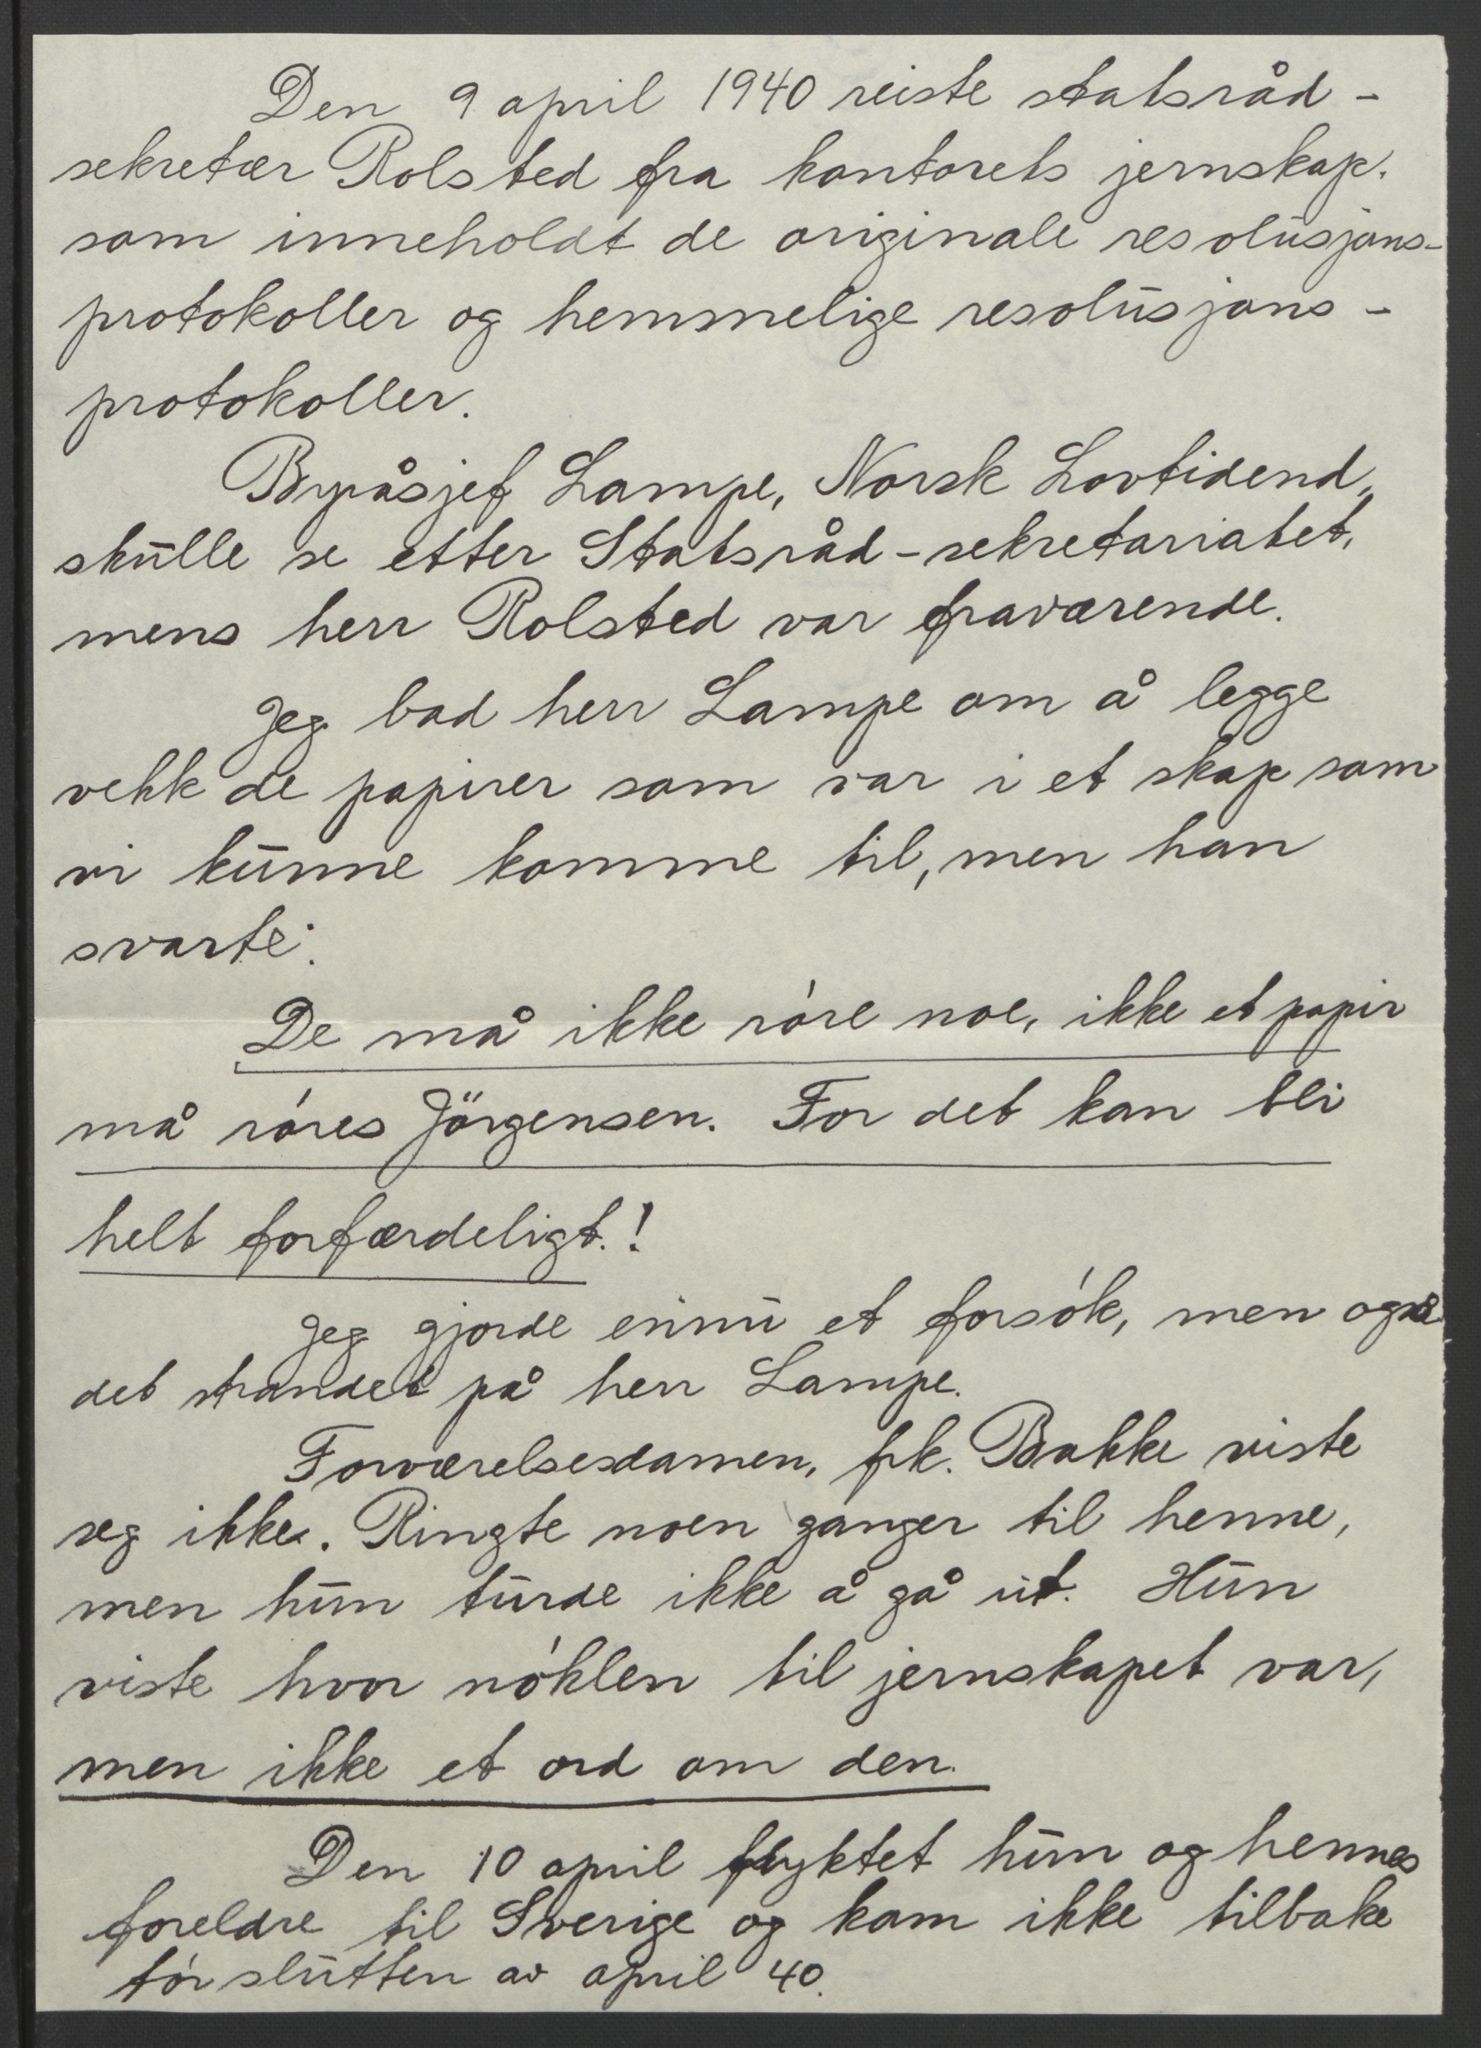 Den 9 april 1940 reiste statsråd-
sekretær Rolsted fra kontorets jernskap.
som inneholdt de originale resolusjons-
protokoller og hemmelige resolusjons-
protokoller.
Byråsjef Lampe, Norsk Lovtidend,
skulle se etter Statsråd-sekretariatet,
mens herr Rolsted var fraværende.
Jeg bad herr Lampe om å legge
vekk de papirer som var i et skap som
vi kunne komme til, men han
svarte:
De må ikke róre noe, ikke et papir
må róres Jörgensen. For det kan bli
helt forfærdeligt.!
Jeg gjorde ennu et forsók, men også
det strandet på herr Lampe.
Forværelsesdamen, frk. Bakke viste
seg ikke. Ringte noen ganger til henne,
men hun turde ikke å gå ut. Hun
viste hvor nóklen til jernskapet var,
men ikke et ord om den.
Den 10 april flyktet hun og hennes
foreldre til Sverige og kom ikke tilbake
fór slutten av april 40.